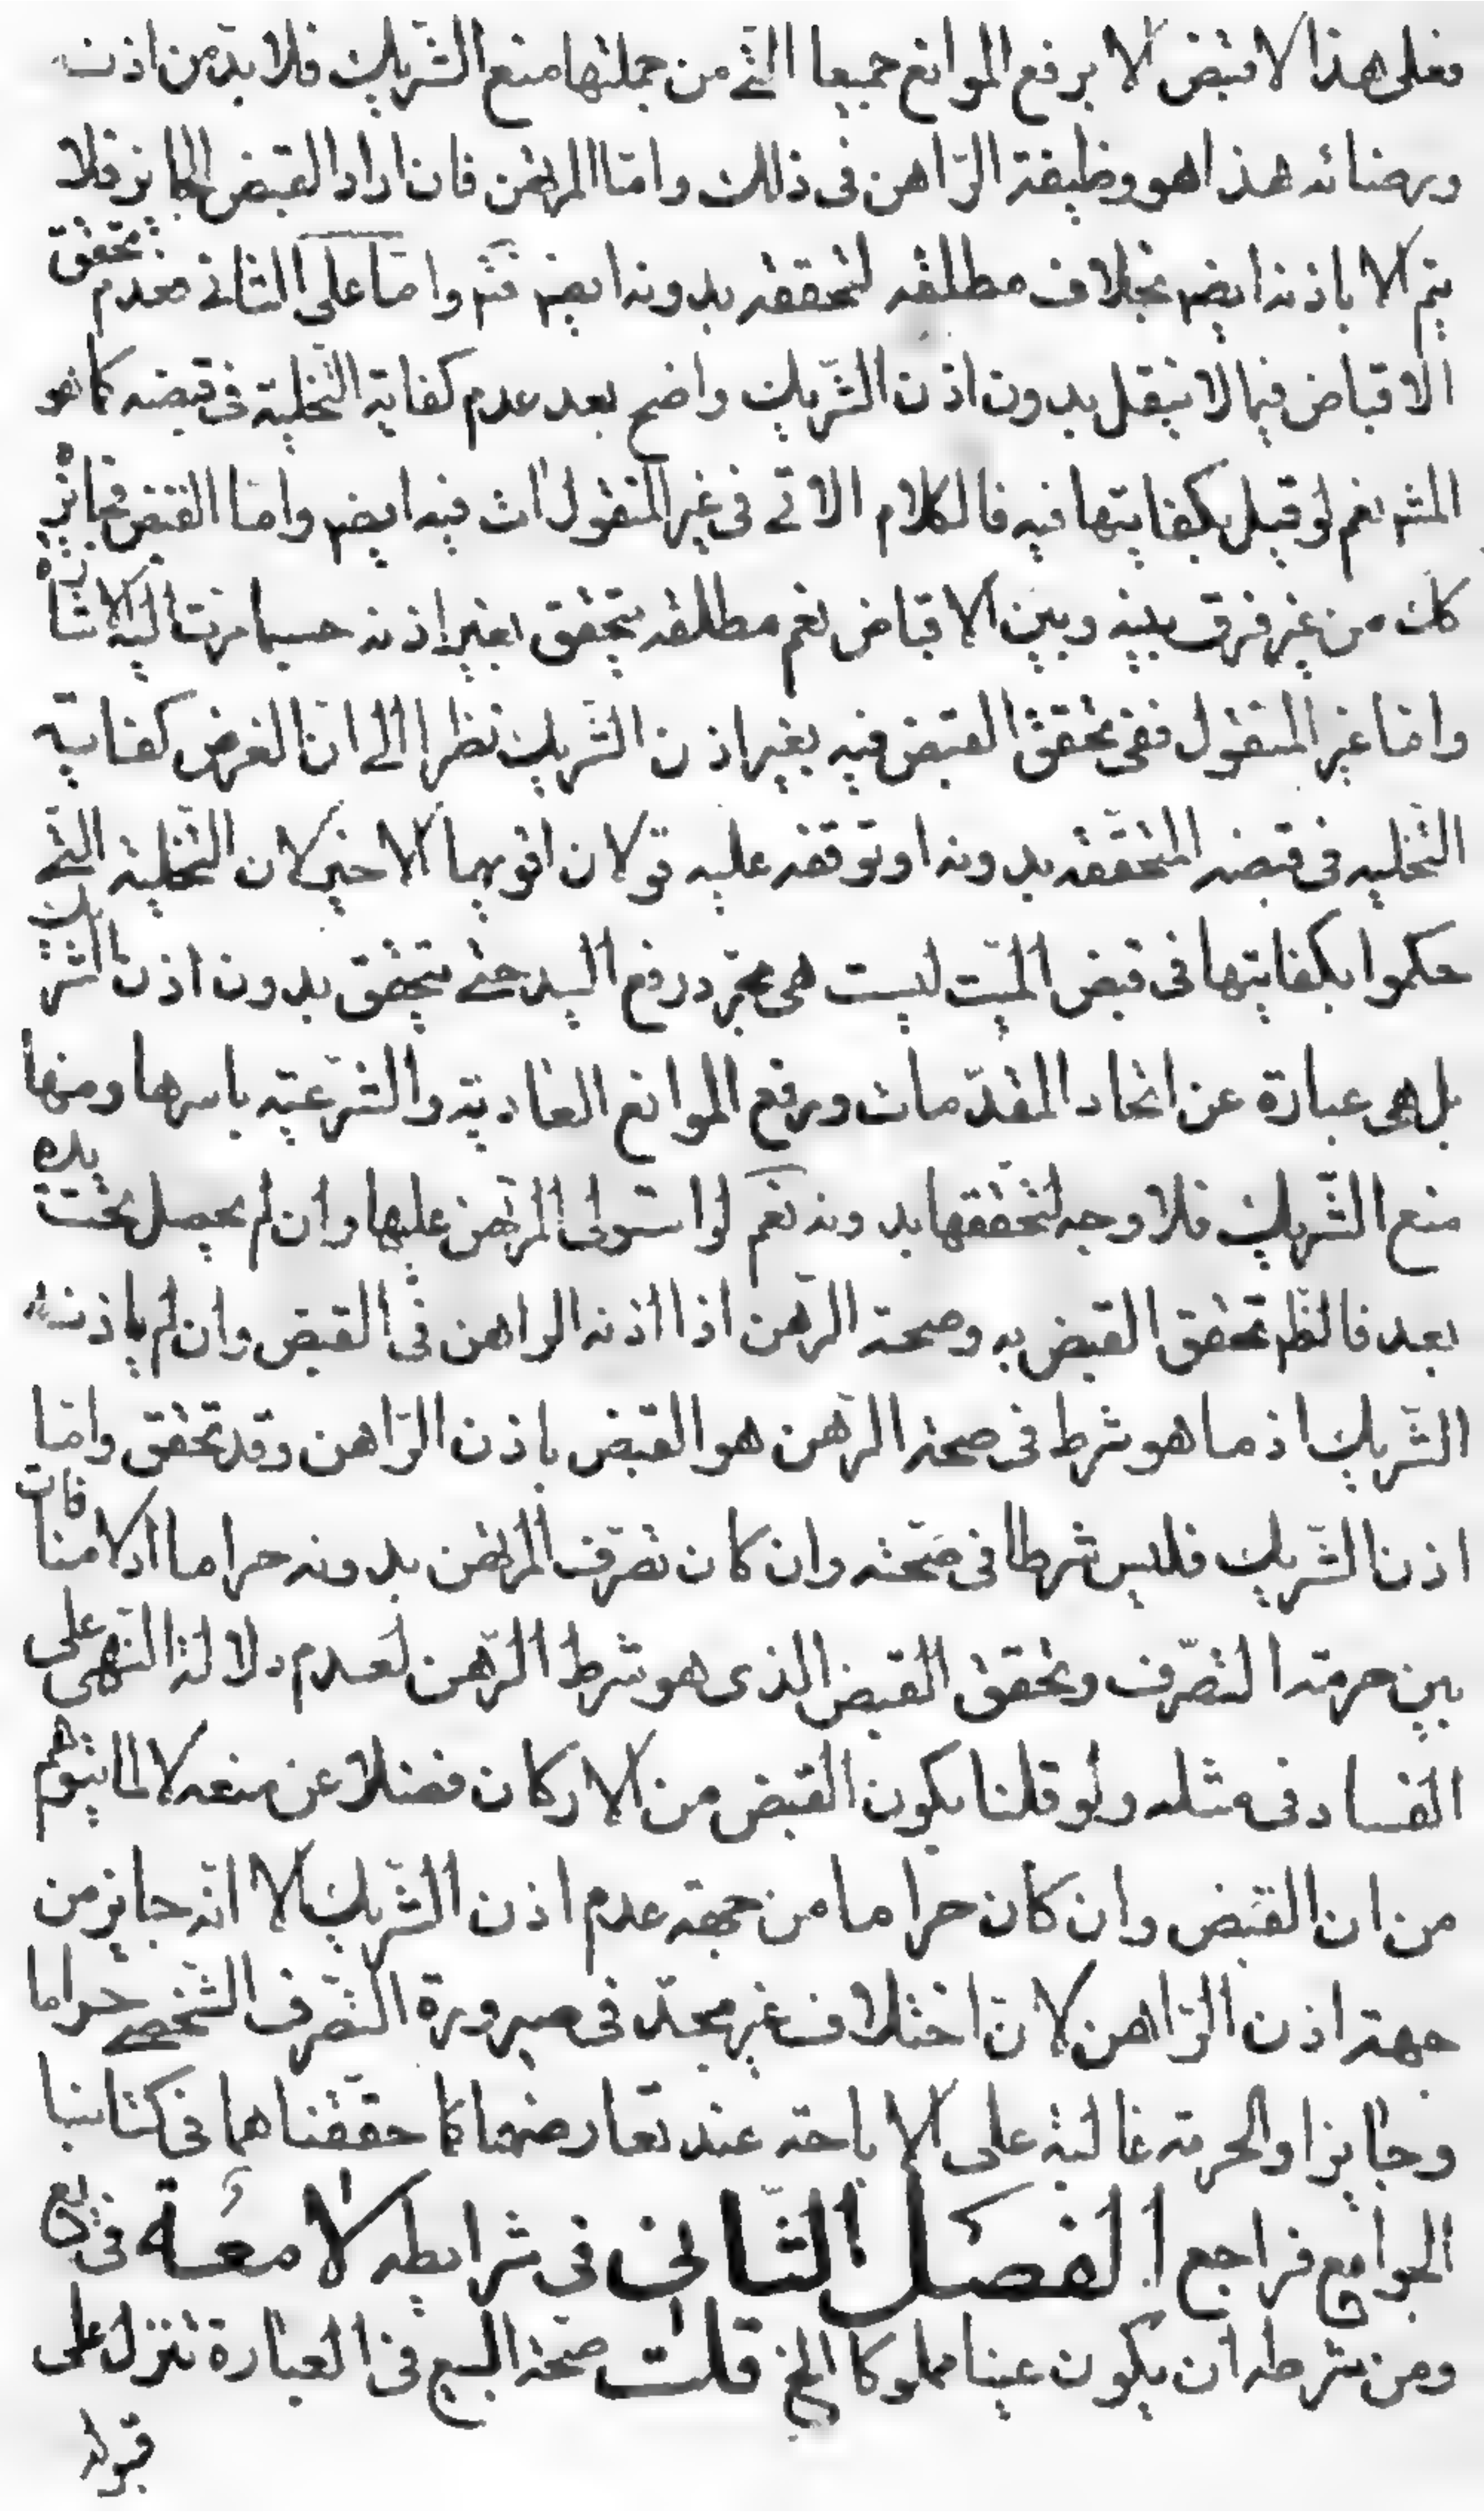 فعلى هذا لا قبض الا برفع الموانع جميعا التى من جملتها منع الشريك فلا بد من اذنه
ورضائه هذا هو وظيفة الراهن فى ذلك واما المرتهن فان اراد القبض الجايز فلا
يتم الا باذنه ايضم بخلاف مطلقه لتحققه بدونه ايضم فتم واما على الثانى فعدم تحقق
الاقباض فيما لا ينقل بدون اذن الشريك واضح بعد عدم كفاية التخلية فى قبضه كما هو
المشم نعم لو قيل بكفايتها فيه فالكلام الاتى فى غير المنقول ات فيه ايضم واما القبض فجايزه
كك من غير فرق بينه وبين الاقباض نعم مطلقه يتحقق بغير اذنه حسبما مرت اليه الاشارة
واما غير المنقول ففى تحقق القبض فيه بغير اذن الشريك نظرا الى ان الغرض كفاية
التخليه فى قبضه المتحققه بدونه او توقفه عليه قولان اقويهما الاخير لان التخلية التى
حكموا بكفايتها فى قبض المبيت ليست هى مجرد رفع اليد حتى يتحقق بدون اذن الشريك
بل هى عبارة عن اتحاد المقدمات ورفع الموانع العادية والشرعيه باسرها ومنها
منع الشريك فلا وجه لتحققها بدونه نعم لو استولى المرتهن عليها وان لم يحصل تحت يده
بعد فالظم تحقق القبض به وصحة الرهن اذا اذنه الراهن فى القبض وان لم ياذنه
الشريك اذ ما هو شرط فى صحة الرهن هو القبض باذن الراهن وقد تحقق واما
اذن الشريك فليس شرطا فى صحته وان كان تصرف المرتهن بدونه حراما اذ لا منافات
بين حرمة التصرف وتحقق القبض الذى هو شرط الرهن لعدم دلالة النهى على
الفساد فى مثله ولو قلنا بكون القبض من الاركان فضلا عن منعه لا لما يتوهم
من ان القبض وان كان حراما من جهة عدم اذن الشريك الا انه جايز من
جهة اذن الراهن لان اختلاف غير مجد فى صيرورة التصرف الشخصى حراما
وجايزا والحرمة غالبة على الاباحة عند تعارضهما كما حققناهما فى كتابنا
الجوامع فراجع الفصل الثانى فى شرايطه لامعة فى يع
ومن شرطه ان يكون عينا مملوكا الخ قلت صحة البيع فى العبارة تنزل على
قبوله